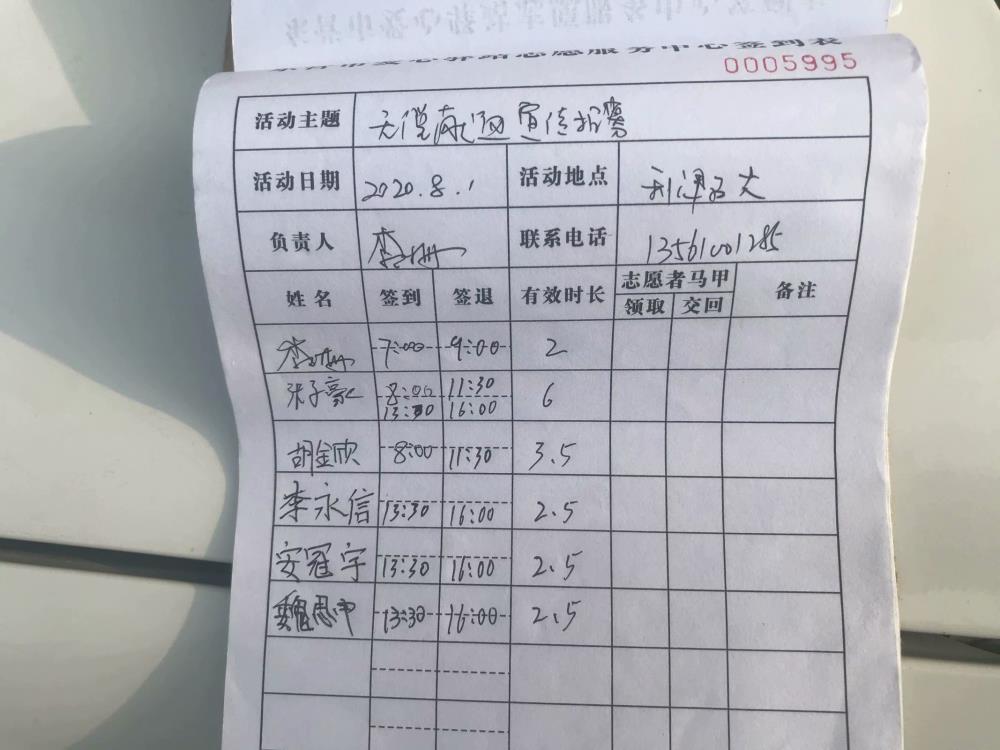 东营市爱心驿站志愿服务中心签到表
0005995
活动主题 无偿献血宣传招募
活动日期 2020.8.1 活动地点 利津
负责人 李 联系电话 13561001285
姓名 签到 签退 有效时长 志愿者马甲 备注
领取 交回
李 7:00 9:00 2
朱子豪 8:00 11:30 6
13:30 16:00
胡金欣 8:00 11:30 3.5
李永信 13:30 16:00 2.5
安冠宇 13:30 16:00 2.5
魏思 13:30 16:00 2.5